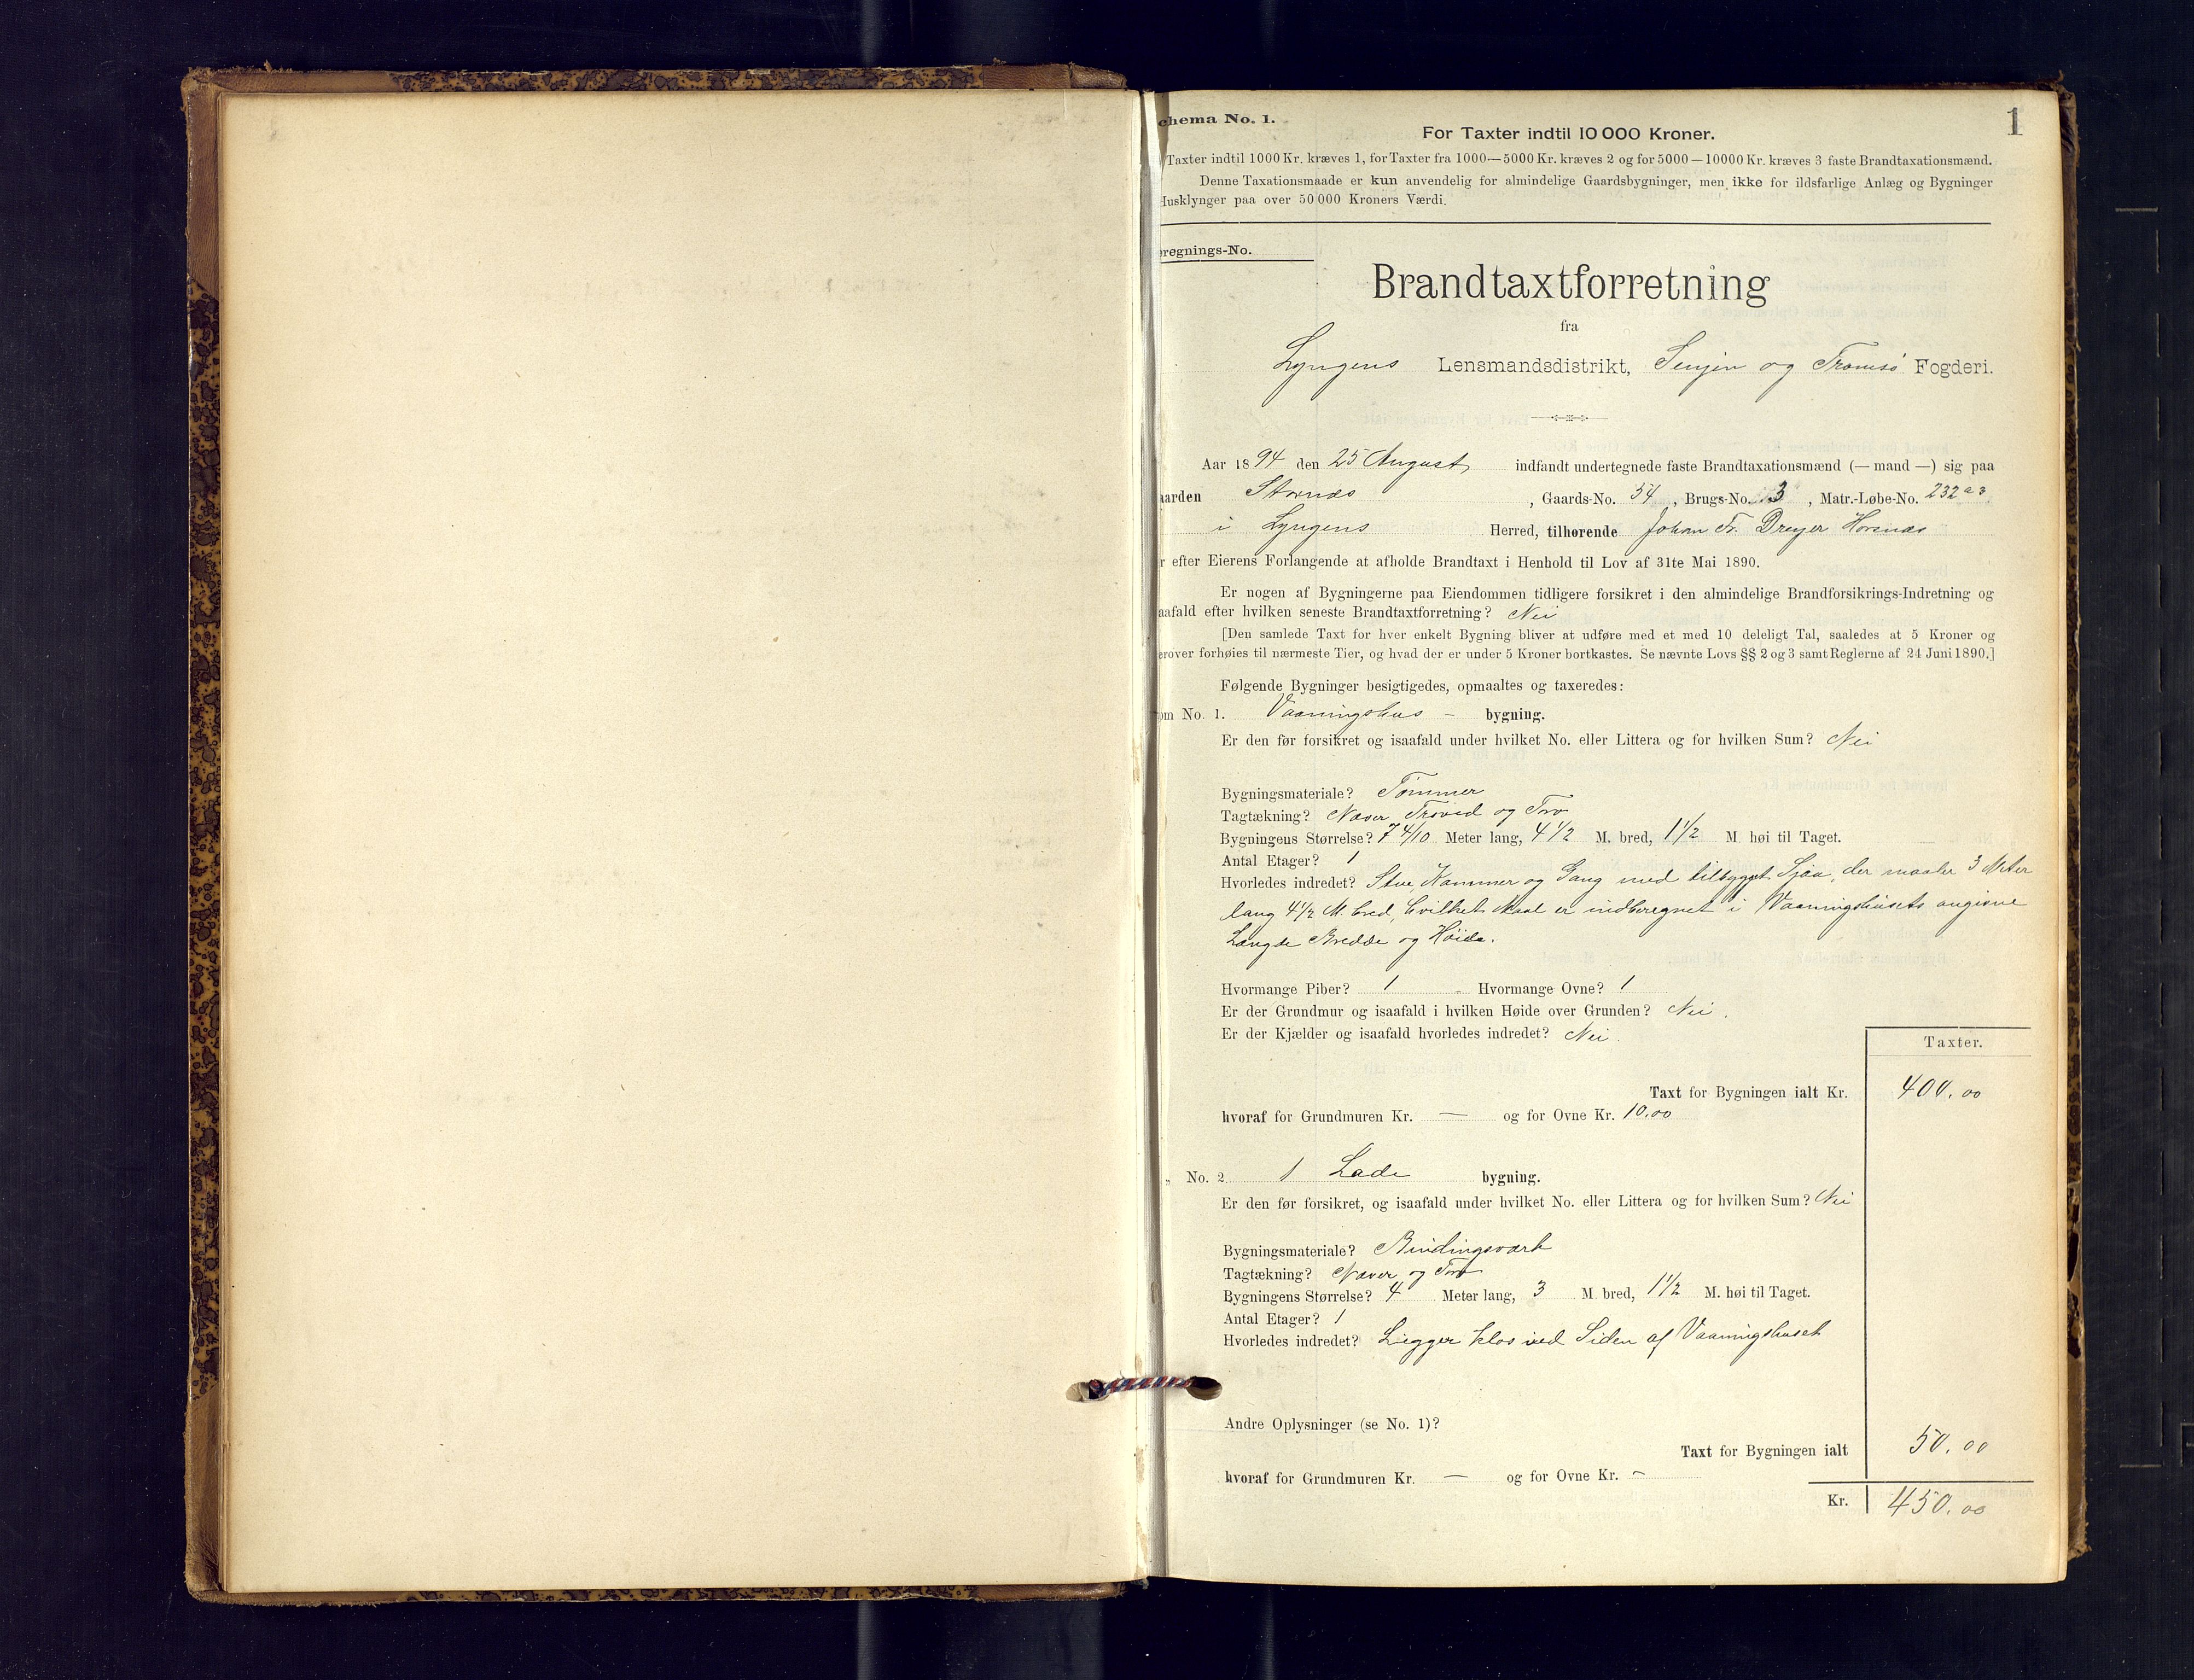 1
chema No. 1.
For Taxter indtil 10 000 Kroner.
Taxter indtil 1000 Kr. kræves 1, for Taxter fra 1000—5000 Kr. kræves 2 og for 5000—10000 Kr. kræves 3 faste Brandtaxationsmænd.
Denne Taxationsmaade er kun anvendelig for almindelige Gaardsbygninger, men ikke for ildsfarlige Anlæg og Bygninger
Husklynger paa over 50 000 Kroners Værdi.
regnings-No.
Brandtaxtforretning
fra
Lyngens Lensmandsdistrikt, Senjen og Tromsø Fogderi.
Aar 1894 den 25 August indfandt undertegnede faste Brandtaxationsmænd (— mand —) sig paa
aarden Stornæs, Gaards-No. 54, Brugs-No. 3, Matr.-Løbe-No. 232 a 3
i Lyngens Herred, tilhørende Johan Fr. Dreyer Horsnæs
r efter Eierens Forlangende at afholde Brandtaxt i Henhold til Lov af 31te Mai 1890.
Er nogen af Bygningerne paa Eiendommen tidligere forsikret i den almindelige Brandforsikrings-Indretning og
aafald efter hvilken seneste Brandtaxtforretning? Nei
[Den samlede Taxt for hver enkelt Bygning bliver at udføre med et med 10 deleligt Tal, saaledes at 5 Kroner og
erover forhøies til nærmeste Tier, og hvad der er under 5 Kroner bortkastes. Se nævnte Lovs §§ 2 og 3 samt Reglerne af 24 Juni 1890.]
Følgende Bygninger besigtigedes, opmaaltes og taxeredes:
om No. 1. Vaaningshus - bygning.
Er den før forsikret og isaafald under hvilket No. eller Littera og for hvilken Sum? Nei
Bygningsmateriale? Tømmer
Tagtækning? Næver, Troved og Torv
Bygningens Størrelse? 7 4/10 Meter lang, 4 1/2 M. bred, 1 1/2 M. høi til Taget.
Antal Etager? 1
Hvorledes indredet? Stue, Kammer og Gang med tilbygget Sjaa, der maaler 3 Meter
lang 4 1/2 M. bred, hvilket Maal er indberegnet i Vaaningshusets angivne
Længde Bredde og Høide.
Hvormange Piber? 1 Hvormange Ovne? 1
Er der Grundmur og isaafald i hvilken Høide over Grunden? Nei.
Er der Kjælder og isaafald hvorledes indredet? Nei.
Taxter.
Taxt for Bygningen ialt Kr. 400.00
hvoraf for Grundmuren Kr. — og for Ovne Kr. 10.00
„ No. 2. 1 Lade bygning.
Er den før forsikret, og isaafald under hvilket No. eller Littera og for hvilken Sum? Nei
Bygningsmateriale? Bindingsværk
Tagtækning? Næver og Torv
Bygningens Størrelse? 4 Meter lang, 3 M. bred, 1 1/2 M. høi til Taget.
Antal Etager? 1
Hvorledes indredet? Ligger klos ved Siden af Vaaningshuset
Andre Oplysninger (se No. 1)?
Taxt for Bygningen ialt 50.00
hvoraf for Grundmuren Kr. — og for Ovne Kr. -
Kr. 450.00